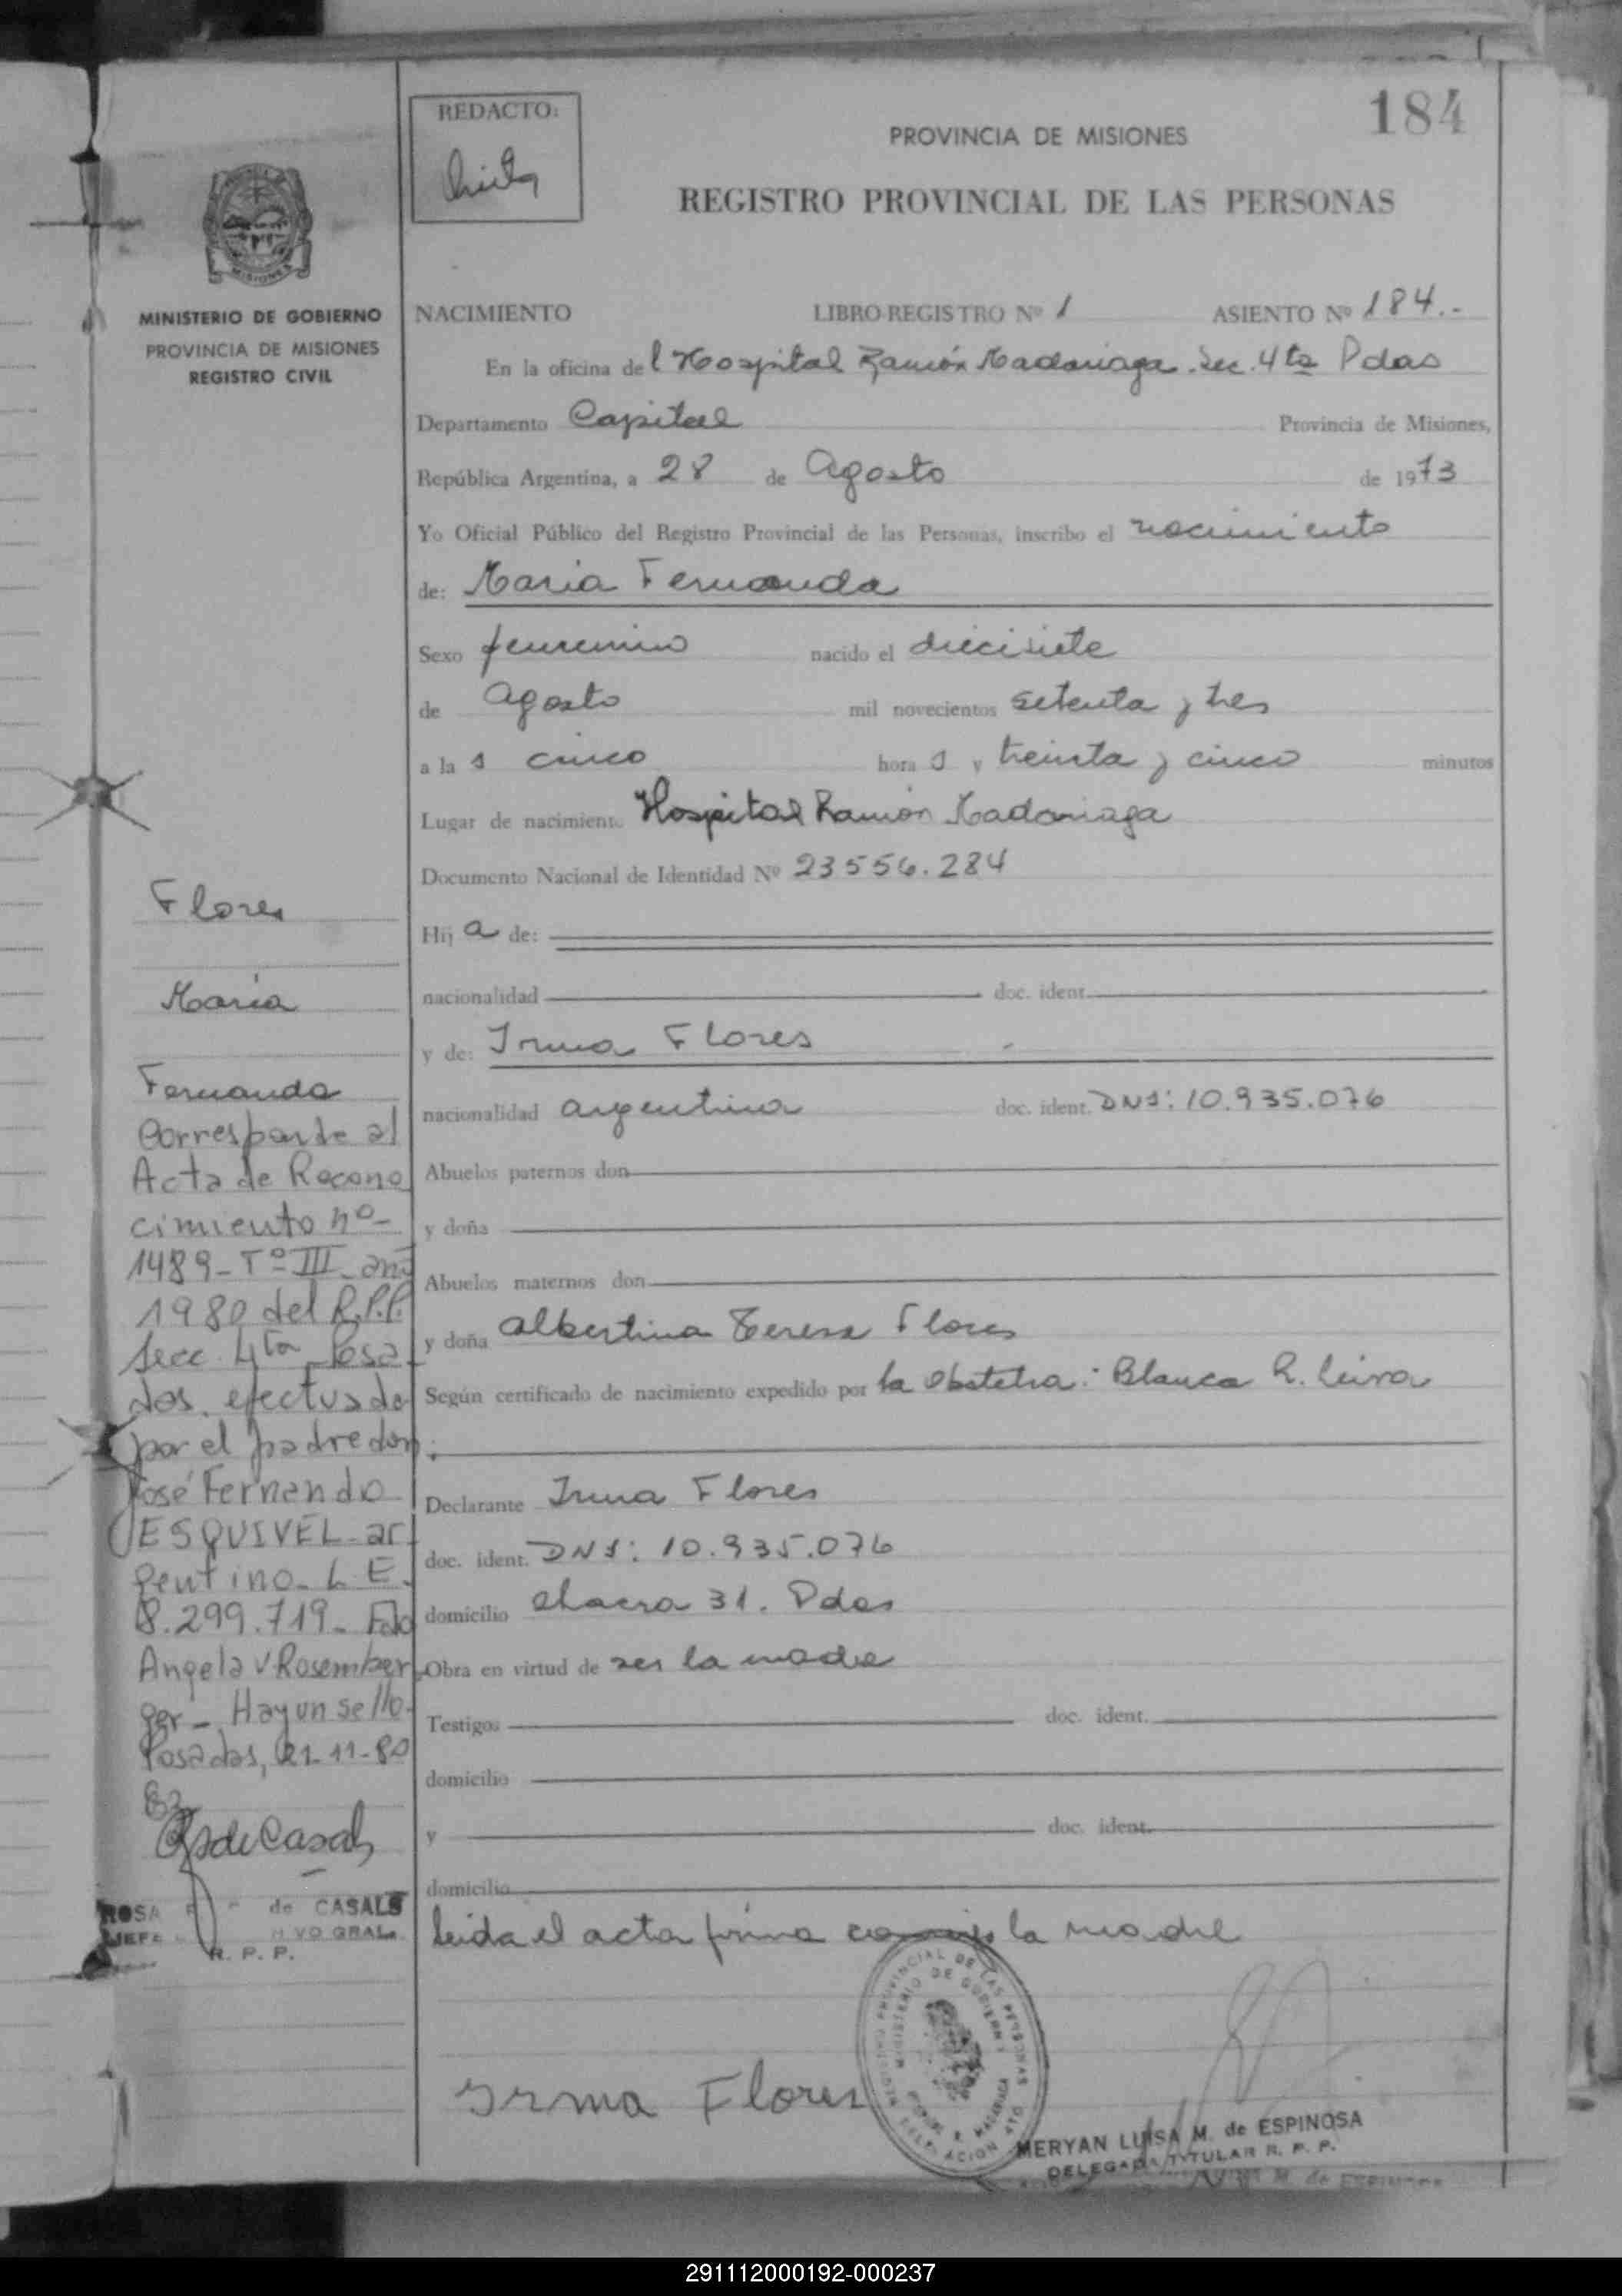 184
REDACTO:
PROVINCIA DE MISIONES
REGISTRO PROVINCIAL DE LAS PERSONAS
MISIONES
MINISTERIO DE GOBIERNO
PROVINCIA DE MISIONES
REGISTRO CIVIL
NACIMIENTO LIBRO REGISTRO Nº 1 ASIENTO Nº 184.-
En la oficina del Hospital Ramón Madariaga. Sec. 4ta Pdas
Departamento Capital Provincia de Misiones,
República Argentina, a 28 de Agosto de 1973
Yo Oficial Público del Registro Provincial de las Personas, inscribo el nacimiento
de: Maria Fernanda
Sexo femenino nacido el diecisiete
de agosto mil novecientos setenta y tres
a la s cinco hora s y treinta y cinco minutos
Lugar de nacimiento Hospital Ramón Madariaga
Documento Nacional de Identidad Nº 23556.284
Hij a de:
nacionalidad doc. ident.
y de: Irma Flores
nacionalidad argentina doc. ident. DNI: 10.935.076
Abuelos paternos don
y doña
Abuelos maternos don
y doña Albertina Teresa Flores
Según certificado de nacimiento expedido por la Obstetra: Blanca R. Leiva
Declarante Irma Flores
doc. ident. DNI: 10.935.076
domicilio Chacra 31. Pdas
Obra en virtud de ser la madre
Testigos doc. ident.
domicilio
y doc. ident.
domicilio
leida el acta firma conmigo la madre
Irma Flores
REGISTRO PROVINCIAL DE LAS PERSONAS
MINISTERIO DE GOBIERNO
MERYAN LUISA M. de ESPINOSA
DELEGADA TITULAR R. P. P.
Flores
María
Fernanda
Corresponde al
Acta de Recono
cimiento nº-
1489- Tº III- año
1980 del R.P.P.
Secc. 4ta Posa
das, efectuado
por el padre don
José Fernando
ESQUIVEL- ar
gentino- L.E.
8.299.719- Fdo
Angela V Rosember
ger- Hay un sello-
Posadas, 21-11-80
RsdeCasals
ROSA de CASALS
JEFE VO GRAL.
R. P. P.
291112000192-000237